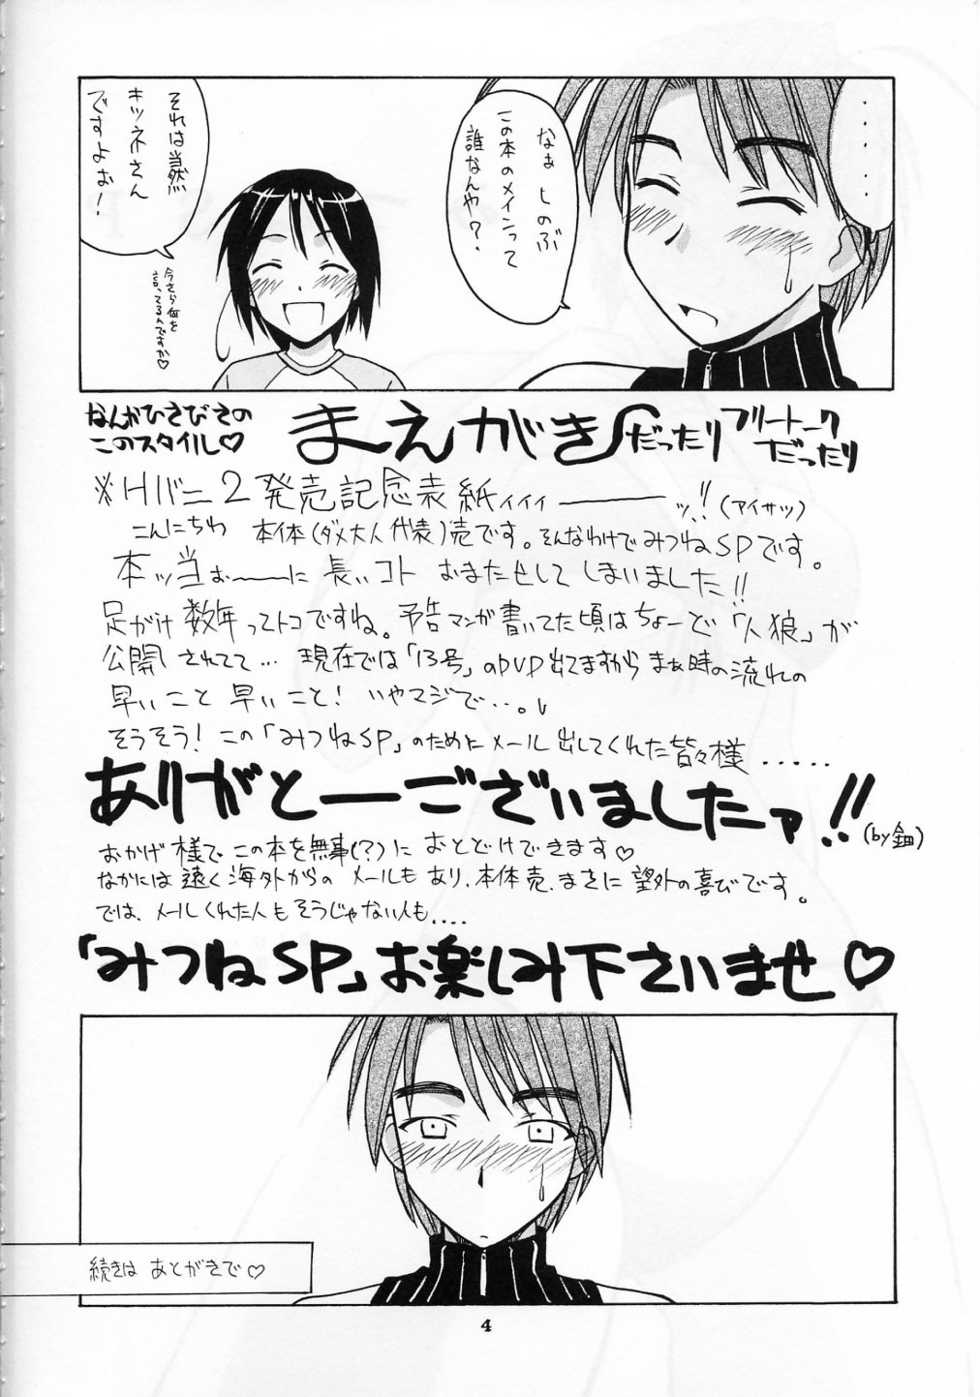 ・・・・・
なぁ しのぶ
この本のメインって
誰なんや?
それは当然
キツネさん
ですよぉ!
今さら何を
言ってるんですか♡
なんかひさびさの
このスタイル♡
まえがき
だったり
フリートーク
だったり
※Hバニ2発売記念表紙ィィィーーッ!!(アイサツ)
こんにちわ 本体(ダメ大人代表)売です。そんなわけでみつねSPです。
本ッ当ぉーーに 長いコト おまたせして しまいました!!
足かけ数年ってトコですね。予告マンガ書いてた頃はちょーど「人狼」が
公開されてて… 現在では「13号」のDVD出てますから まぁ時の流れの
早いこと 早いこと! いやマジで…。
そうそう! この「みつねSP」のためにメール出してくれた皆々様 .....
ありがとーございましたァ!!
(by 鈿)
おかげ様で この本を無事(?)に おとどけできます♡
なかには遠く海外からの メールもあり、本体売、まさに 望外の喜びです。
では、メールくれた人もそうじゃない人も....
「みつねSP」お楽しみ下さいませ♡
続きは あとがきで♡
4